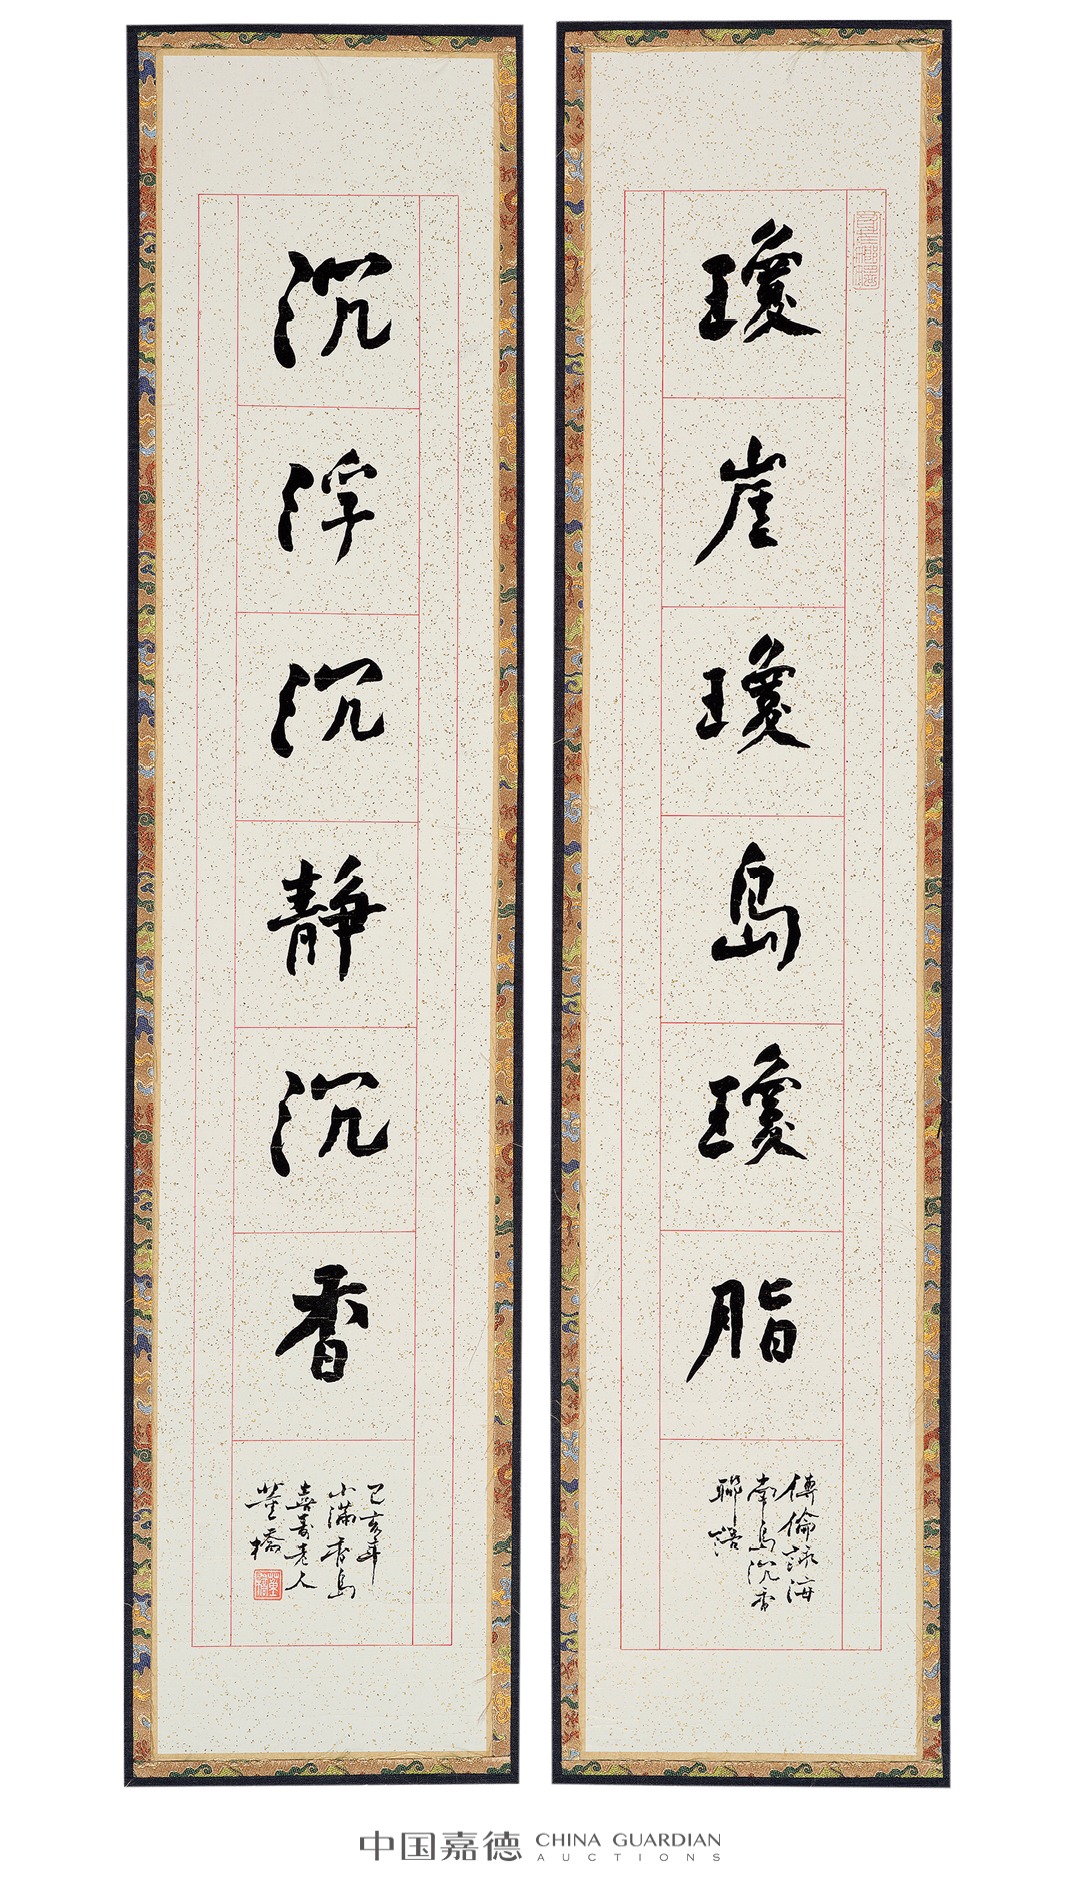 瓊崖瓊島瓊脂
傅倫詠海
南島沉香
聯語
沉浮沉靜沉香
己亥年
小滿香島
喜壽老人
董橋
董橋
中国嘉德 CHINA GUARDIAN
AUCTIONS